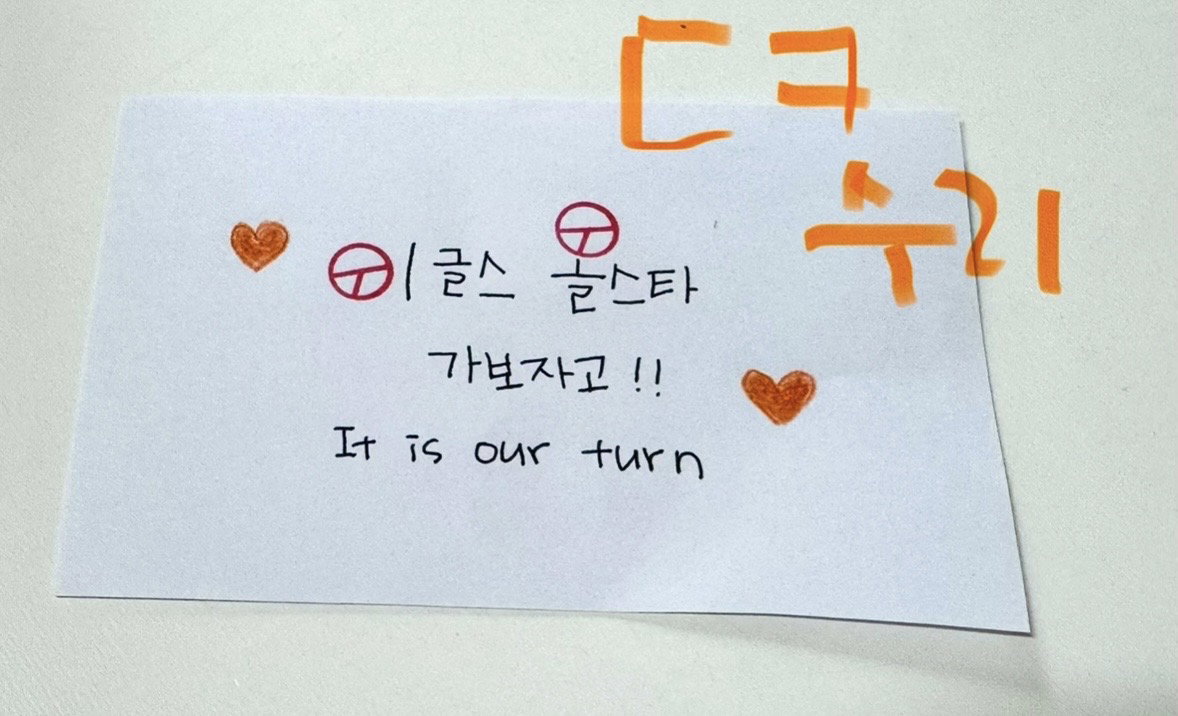 ㄷㅋ
수리
이글스 올스타
가보자고!!
It is our turn